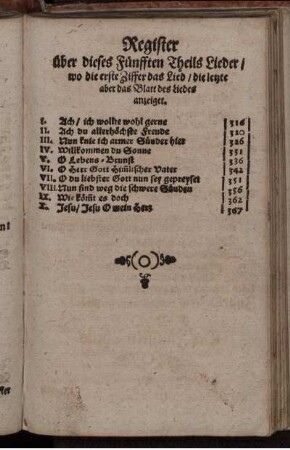 Register
über dieses Fünfften Theils Lieder /
wo die erste Ziffer das Lied / die letzte
aber das Blatt des Liedes
anzeiget.
I. Ach / ich wolte wohl gerne 316
II. Ach du allerhöchste Freude 320
III. Nun knie ich armer Sünder hier 326
IV. Willkommen du Sonne 331
V. O Lebens-Brunst 336
VI. O Herr Gott Himlischer Vater 342
VII. O du liebster Gott nun sey gepreyset 351
VIII. Nun sind weg die schwere Sünden 356
IX. Wie kömt es doch 362
X. Jesu / Jesu O mein Hertz 367